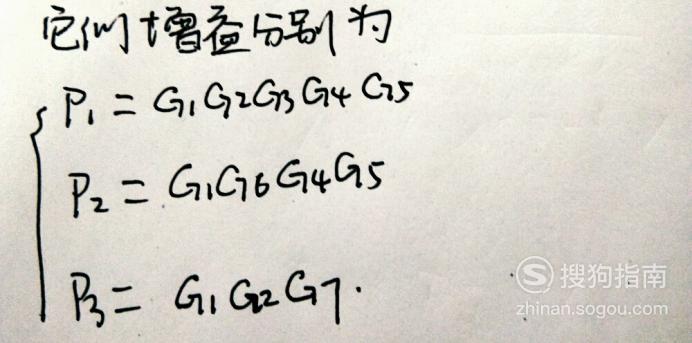 它们增益分别为
P₁ = G₁G₂G₃G₄G₅
P₂ = G₁G₆G₄G₅
P₃ = G₁G₂G₇.
搜狗指南
zhinan.sogou.com